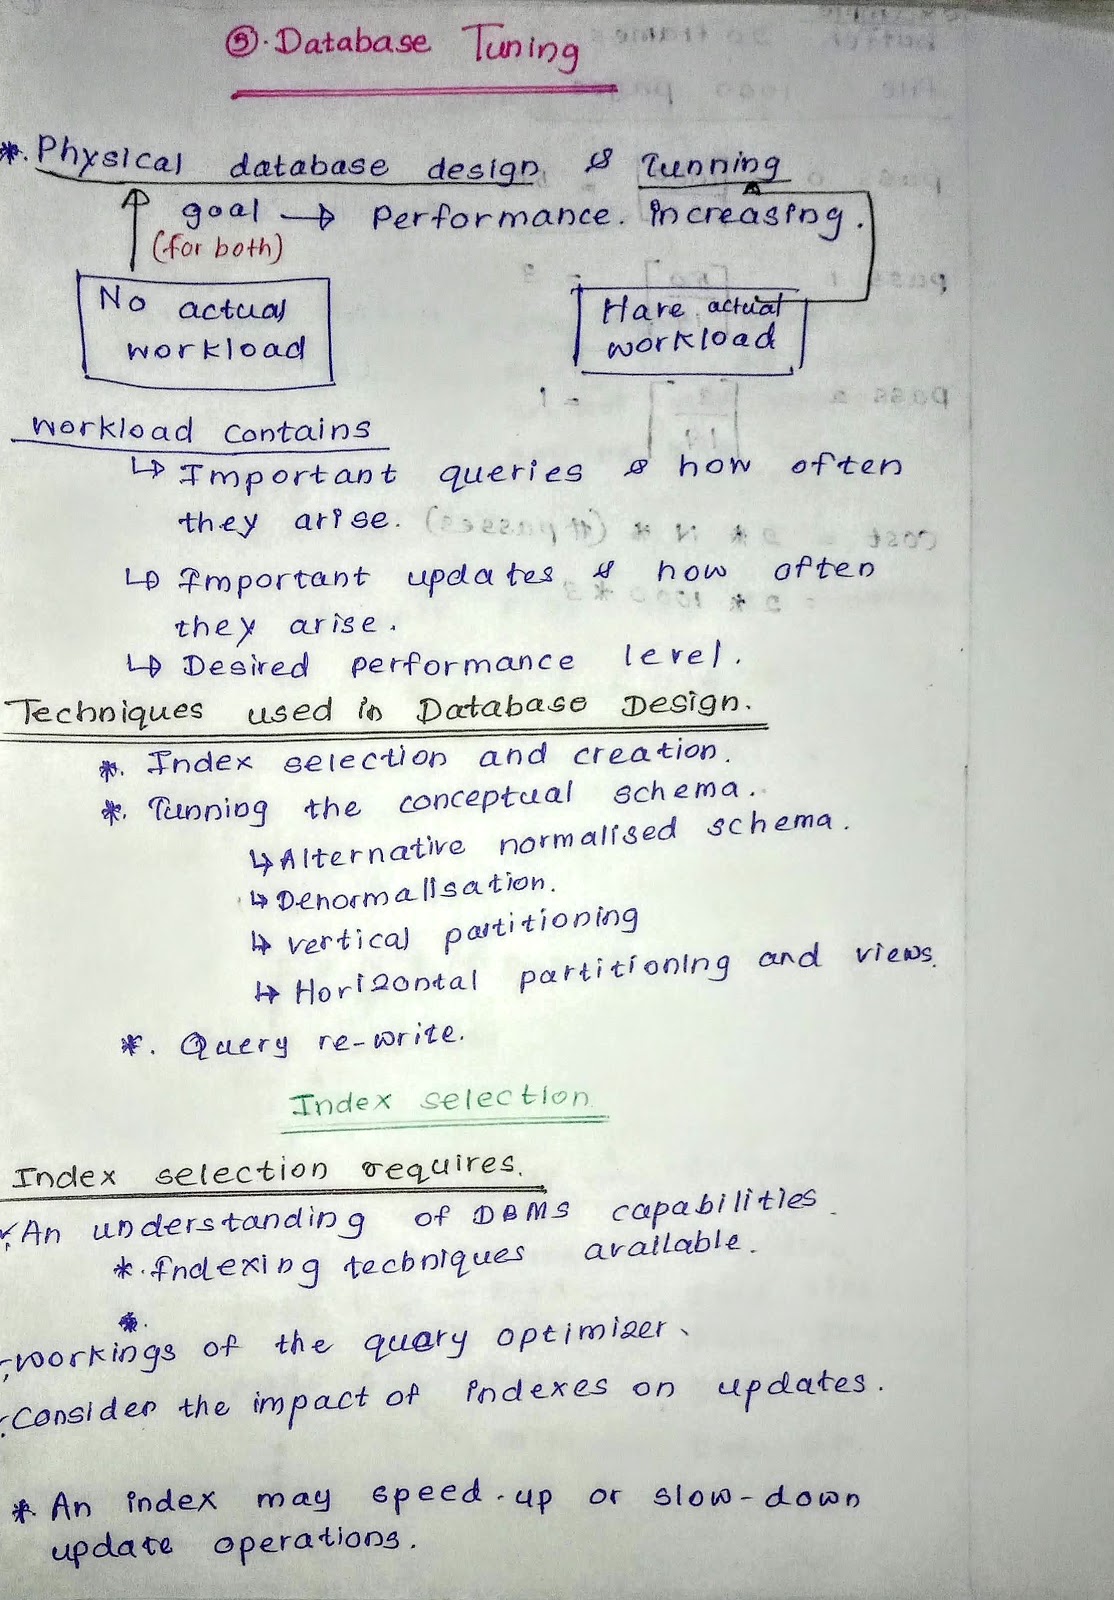 ⑤. Database Tuning
*. Physical database design & Tunning
goal → Performance. increasing.
(for both)
No actual
workload
Have actual
workload
Workload contains
↳ Important queries & how often
they arise.
↳ Important updates & how often
they arise.
↳ Desired performance level.
Techniques used in Database Design.
*. Index selection and creation.
*. Tunning the conceptual schema.
↳ Alternative normalised schema.
↳ Denormalisation.
↳ vertical partitioning
↳ Horizontal partitioning and views.
*. Query re-write.
Index selection
Index selection requires.
An understanding of DBMS capabilities.
*. Indexing techniques available.
*.
workings of the query optimizer.
Consider the impact of indexes on updates.
* An index may speed-up or slow-down
update operations.